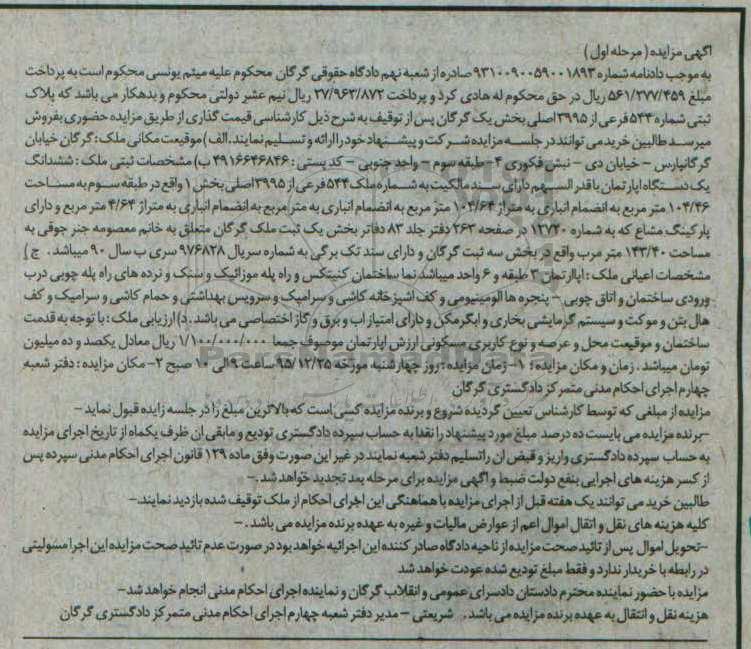 آگهی مزایده ( مرحله اول )
به موجب دادنامه شماره ۹۳۱۰۰۹۰۰۵۹۰۰۱۸۹۳ صادره از شعبه نهم دادگاه حقوقی گرگان محکوم علیه میثم یونسی محکوم است به پرداخت
مبلغ ۵۶۱/۲۷۷/۴۵۹ ریال در حق محکوم له هادی کرد و پرداخت ۲۷/۹۶۳/۸۷۲ ریال نیم عشر دولتی محکوم و بدهکار می باشد که پلاک
ثبتی شماره ۵۴۴ فرعی از ۳۹۹۵ اصلی بخش یک گرگان پس از توقیف به شرح ذیل کارشناسی قیمت گذاری از طریق مزایده حضوری بفروش
میرسد طالبین خرید می توانند در جلسه مزایده شرکت و پیشنهاد خود را ارائه و تسلیم نمایند. الف) موقعیت مکانی ملک : گرگان خیابان
گرگانپارس – خیابان دی – نبش فکوری ۴ – طبقه سوم – واحد جنوبی – کد پستی : ۴۹۱۶۶۴۶۸۴۶ ب) مشخصات ثبتی ملک : ششدانگ
یک دستگاه اپارتمان با قدر السهم دارای سند مالکیت به شماره ملک ۵۴۴ فرعی از ۳۹۹۵ اصلی بخش ۱ واقع در طبقه سوم به مساحت
۱۰۴/۴۶ متر مربع به انضمام انباری به متراژ ۱۰۴/۶۴ متر مربع به انضمام انباری به متر مربع به انضمام انباری به متراژ ۴/۶۴ متر مربع و دارای
پارکینگ مشاع که به شماره ۱۲۷۲۰ در صفحه ۲۶۳ دفتر جلد ۸۳ دفاتر بخش یک ثبت ملک گرگان متعلق به خانم معصومه جنز جوقی به
مساحت ۱۴۳/۴۰ متر مرب واقع در بخش سه ثبت گرگان و دارای سند تک برگی به شماره سریال ۹۷۶۸۲۸ سری ب سال ۹۰ میباشد . ج )
مشخصات اعیانی ملک : اپارتمان ۳ طبقه و ۶ واحد میباشد نما ساختمان کنیتکس و راه پله موزائیک و سنگ و نرده های راه پله چوبی درب
ورودی ساختمان و اتاق چوبی – پنجره ها آلومینیومی و کف اشپزخانه کاشی و سرامیک و سرویس بهداشتی و حمام کاشی و سرامیک و کف
هال بتن و موکت و سیستم گرمایشی بخاری و ابگرمکن و دارای امتیاز اب و برق و گاز اختصاصی می باشد . د) ارزیابی ملک : با توجه به قدمت
ساختمان و موقیعت محل و عرصه و نوع کاربری مسکونی ارزش اپارتمان موصوف جمعا ۱/۱۰۰/۰۰۰/۰۰۰ ریال معادل یکصد و ده میلیون
تومان میباشد . زمان و مکان مزایده : ۱– زمان مزایده : روز چهارشنبه مورخه ۹۵/۱۲/۲۵ ساعت ۹ الی ۱۰ صبح ۲– مکان مزایده : دفتر شعبه
چهارم اجرای احکام مدنی متمرکز دادگستری گرگان
مزایده از مبلغی که توسط کارشناس تعیین گردیده شروع و برنده مزایده کسی است که بالاترین مبلغ را در جلسه زایده قبول نماید –
–برنده مزایده می بایست ده درصد مبلغ مورد پیشنهاد را نقدا به حساب سپرده دادگستری تودیع و مابقی ان ظرف یکماه از تاریخ اجرای مزایده
به حساب سپرده دادگستری واریز و قبض ان را تسلیم دفتر شعبه نمایند در غیر این صورت وفق ماده ۱۲۹ قانون اجرای احکام مدنی سپرده پس
از کسر هزینه های اجرایی بنفع دولت ضبط و آگهی مزایده برای مرحله بعد تجدید خواهد شد. –
طالبین خرید می توانند یک هفته قبل از اجرای مزایده با هماهنگی این اجرای احکام از ملک توقیف شده بازدید نمایند.–
کلیه هزینه های نقل و انتقال اموال اعم از عوارض مالیات و غیره به عهده برنده مزایده می باشد . –
–تحویل اموال پس از تائید صحت مزایده از ناحیه دادگاه صادر کننده این اجرائیه خواهد بود در صورت عدم تائید صحت مزایده این اجرا مسئولیتی
در رابطه با خریدار ندارد و فقط مبلغ تودیع شده عودت خواهد شد
مزایده با حضور نماینده محترم دادستان دادسرای عمومی و انقلاب گرگان و نماینده اجرای احکام مدنی انجام خواهد شد–
هزینه نقل و انتقال به عهده برنده مزایده می باشد . شریعتی – مدیر دفتر شعبه چهارم اجرای احکام مدنی متمرکز دادگستری گرگان